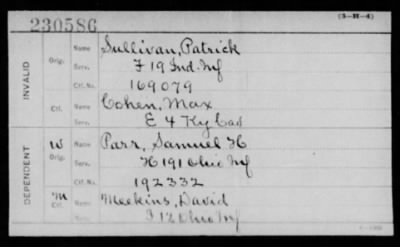 230586
(3-W-4)
INVALID
Orig. Name Sullivan, Patrick
Serv. F 19 Ind. Inf
Ctf. No. 169079
Ctf. Name Cohen, Max
Serv. E 4 Ky Cav
DEPENDENT
W Orig. Name Parr, Samuel H
Serv. H 191 Ohio Inf
Ctf. No. 192332
M Ctf. Name Meekins, David
Serv. 12 Ohio Inf